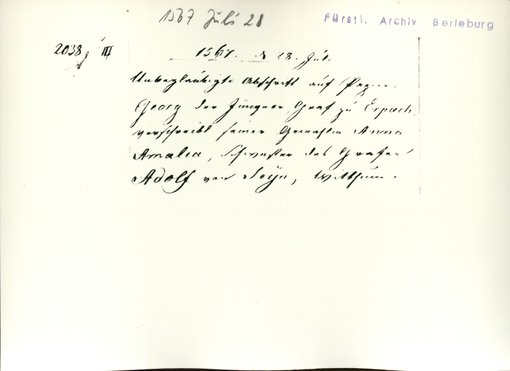 1567 Juli 28
Fürstl. Archiv Berleburg
2038 III
1567. 28. Jul.
Unbeglaubigte Abschrift auf Papier.
Georg der Jüngere Graf zu Erpach
verschreibt seiner Gemahlin Anna
Amalia, Schwester des Grafen
Adolf von Seyn, Witthum.